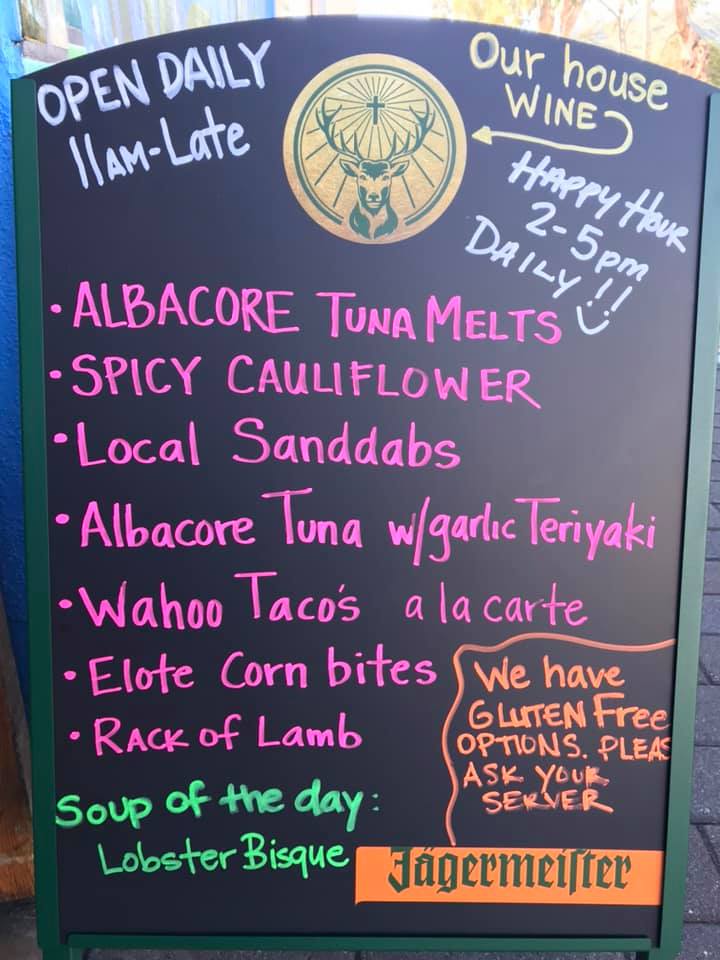 OPEN DAILY
11AM-Late
Our house
WINE
HAPPY HOUR
2-5pm
DAILY!!
• ALBACORE TUNA MELTS
• SPICY CAULIFLOWER
• Local Sanddabs
• Albacore Tuna w/garlic Teriyaki
• Wahoo Taco's a la carte
• Elote Corn bites
• RACK of Lamb
We have
GLUTEN Free
OPTIONS. PLEAS
ASK YOUR
SERVER
Soup of the day:
Lobster Bisque
Jägermeiſter